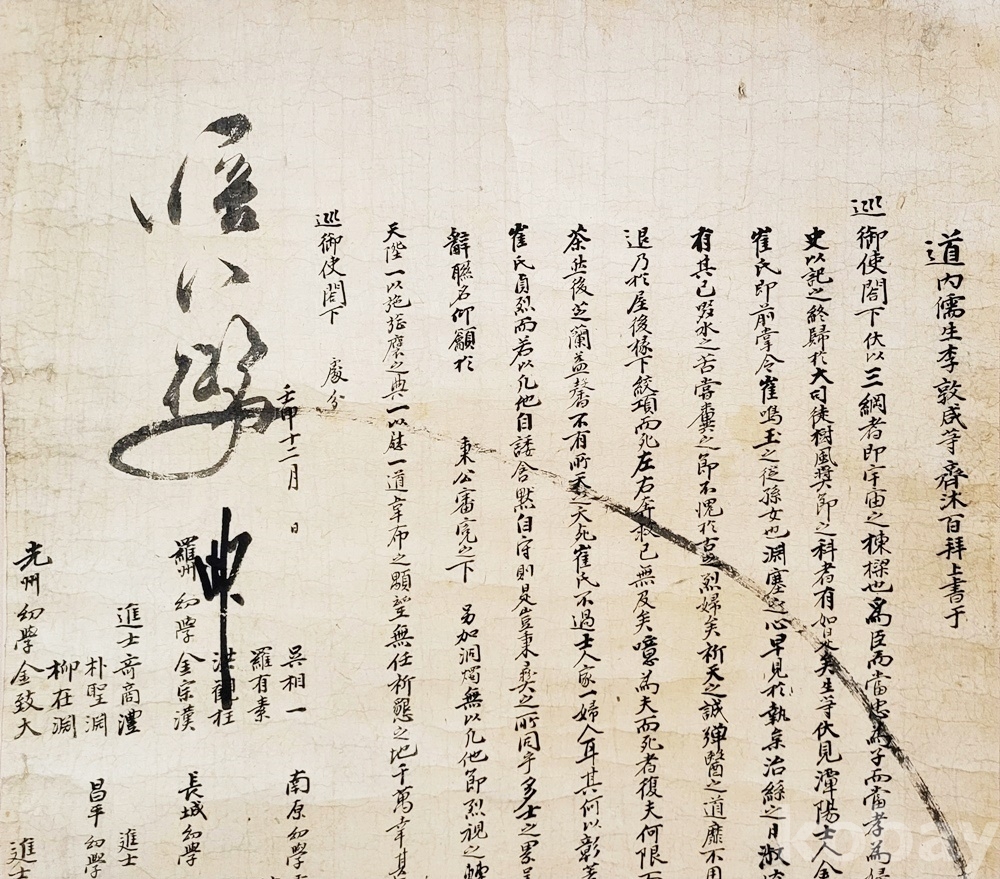 道內儒生李敦咸等齊沐百拜上書于
巡御使閤下伏以三綱者卽宇宙之棟樑也爲臣而當忠爲子而當孝爲婦
史以記之終歸於大司徒樹風奬節之科者有如是矣生等伏見潭陽士人金
崔氏卽前掌令崔鳴玉之從孫女也淵塞之心早見於執枲治絲之日淑
有其已 氷之苦嘗糞之節不愧於古之烈婦矣祈天之誠殫醫之道靡不用
退乃於屋後椽下絞項而死左右奔救已無及矣噫爲夫而死者復夫何限而
茶然後芝蘭益馨不有所天之夭死崔氏不過士人家一婦人耳其何以彰
崔氏貞烈而若以凡他自諉含默自守則是豈秉彝之所同乎多士之
辭聯名仰籲於 秉公審究之下 另加洞燭無以凡他節烈視之轉
天陛一以施旌褒之典一以慰一道章布之顒望無任祈懇之地千萬幸甚
巡御使閤下 處分
壬申十二月 日
吳相一
羅有素
洪 柱
羅州幼學金宗漢
進士奇商灃
朴聖淵
柳在淵
光州幼學金致大
南原幼學
長城幼學
進士
昌平幼學
進士
kobay